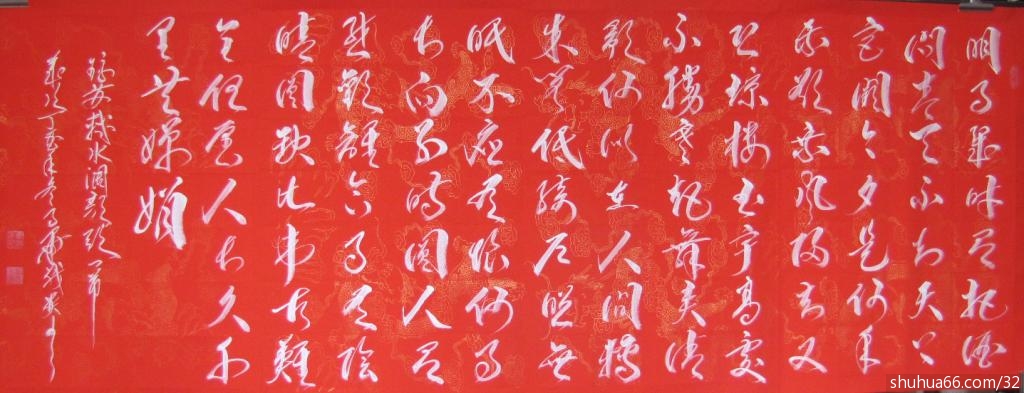 明月幾时有把酒
问青天不知天上
宫阙今夕是何年
我欲乘风归去又
恐琼楼玉宇高处
不勝寒起舞弄清
影何似在人间轉
朱阁低绮户照無
眠不应有恨何事
长向别时圆人有
悲歡離合月有陰
晴圆缺此事古難
全但愿人长久千
里共婵娟
录苏轼水调歌头一节
岁次丁亥年
shuhua66.com/32